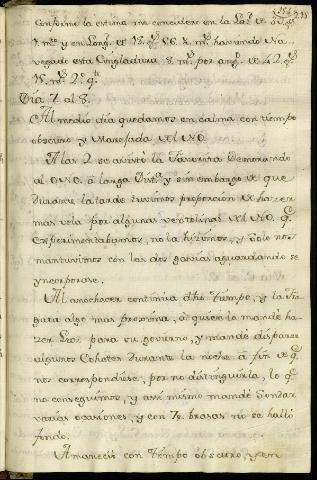 Conforme la estima me considero en la Lat.^d de
1. m.^s y en Long.^d de 12. g.^s 56. m.^s haviendo na
vegado esta Singladura 8. m.^s por ang.^o de 42. g.^s
15. m.^s 2.^o q.^te
Dia 7. al 8.
Al medio dia quedamos en calma con tiempo
obscuro y Marejada del NO.
A las 2 se avistó la Favorita Demorando
al ONO. á larga Dist.^a y sin embargo de que
durante la tarde tuvimos proporcion de hazer
mas vela por algunas ventolinas del NO. q.^e
experimentabamos, no la hizimos, y solo nos
mantuvimos con las dos gavias aguardando se
yncorporase.
Al anochecer continua dho Tiempo, y la Fra
gata algo mas proxima, á quien la mandé ha
zer Froz para su govierno, y mandé disparar
algunos Cohetes durante la noche á fin de q.^e
nos correspondiese, por no distinguirla, lo q.^e
no conseguimos, y assi mismo mandé Sondar
varias ocasiones, y con 70. brasas no se halló
fondo.
Amaneció con Tiempo obscuro, y en